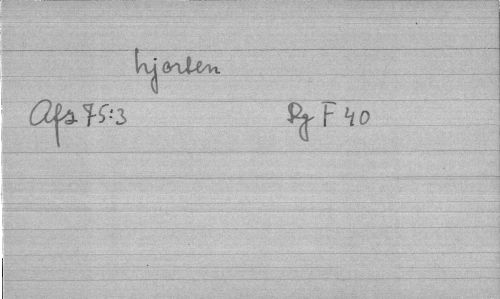 hjorten
Afs 75:3 Rg F 40